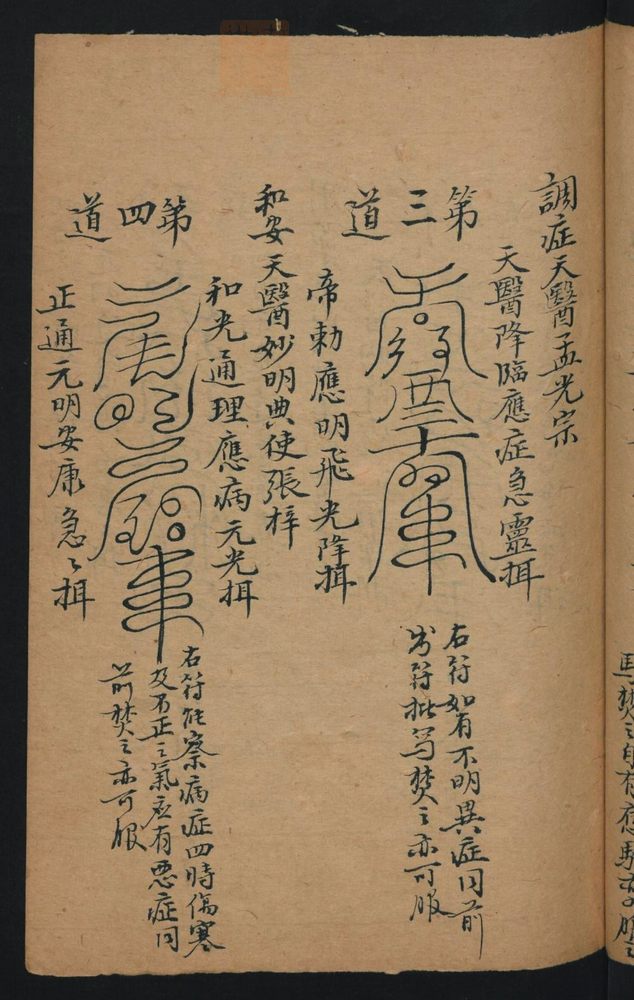 調症天醫孟光宗
天醫降臨應症急靈揖
第三道
右符如有不明異症同前
符批焚之亦可服
帝勅應明飛光降揖
和安天醫妙明典使張梓
和光通理應病元光揖
第四道
右符能察病症四時傷寒
及不正之氣應有惡症同
前焚之亦可服
正通元明安康急々揖